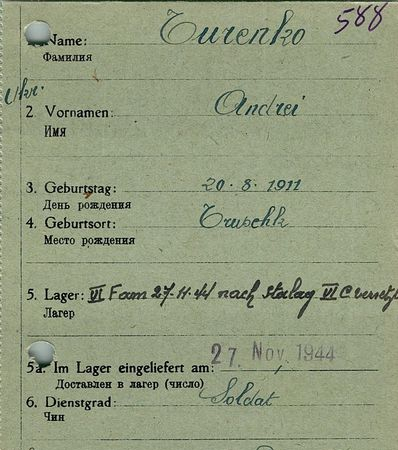 588
1. Name: Turenko
Фамилия
Ukr.
2. Vornamen: Andrei
Имя
3. Geburtstag: 20.8.1911
День рождения
4. Geburtsort: Truschk
Место рождения
5. Lager: VI F am 27.11.44 nach Stalag VI C versetzt
Лагер
5a. Im Lager eingeliefert am: 27. Nov. 1944
Доставлен в лагер (число)
6. Dienstgrad: Soldat
Чин